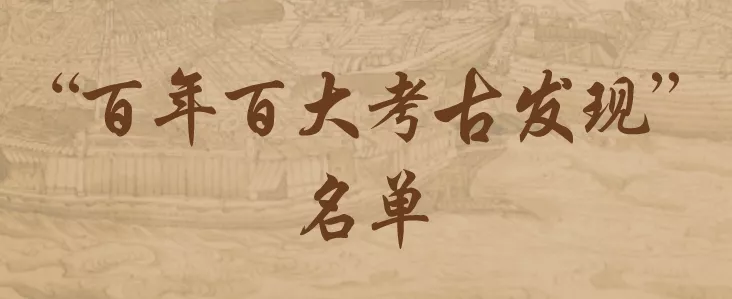 “百年百大考古发现”
名单